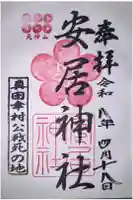 奉拝
令和 年四月十八日
安居神社
真田幸村公戦死の地
天神山